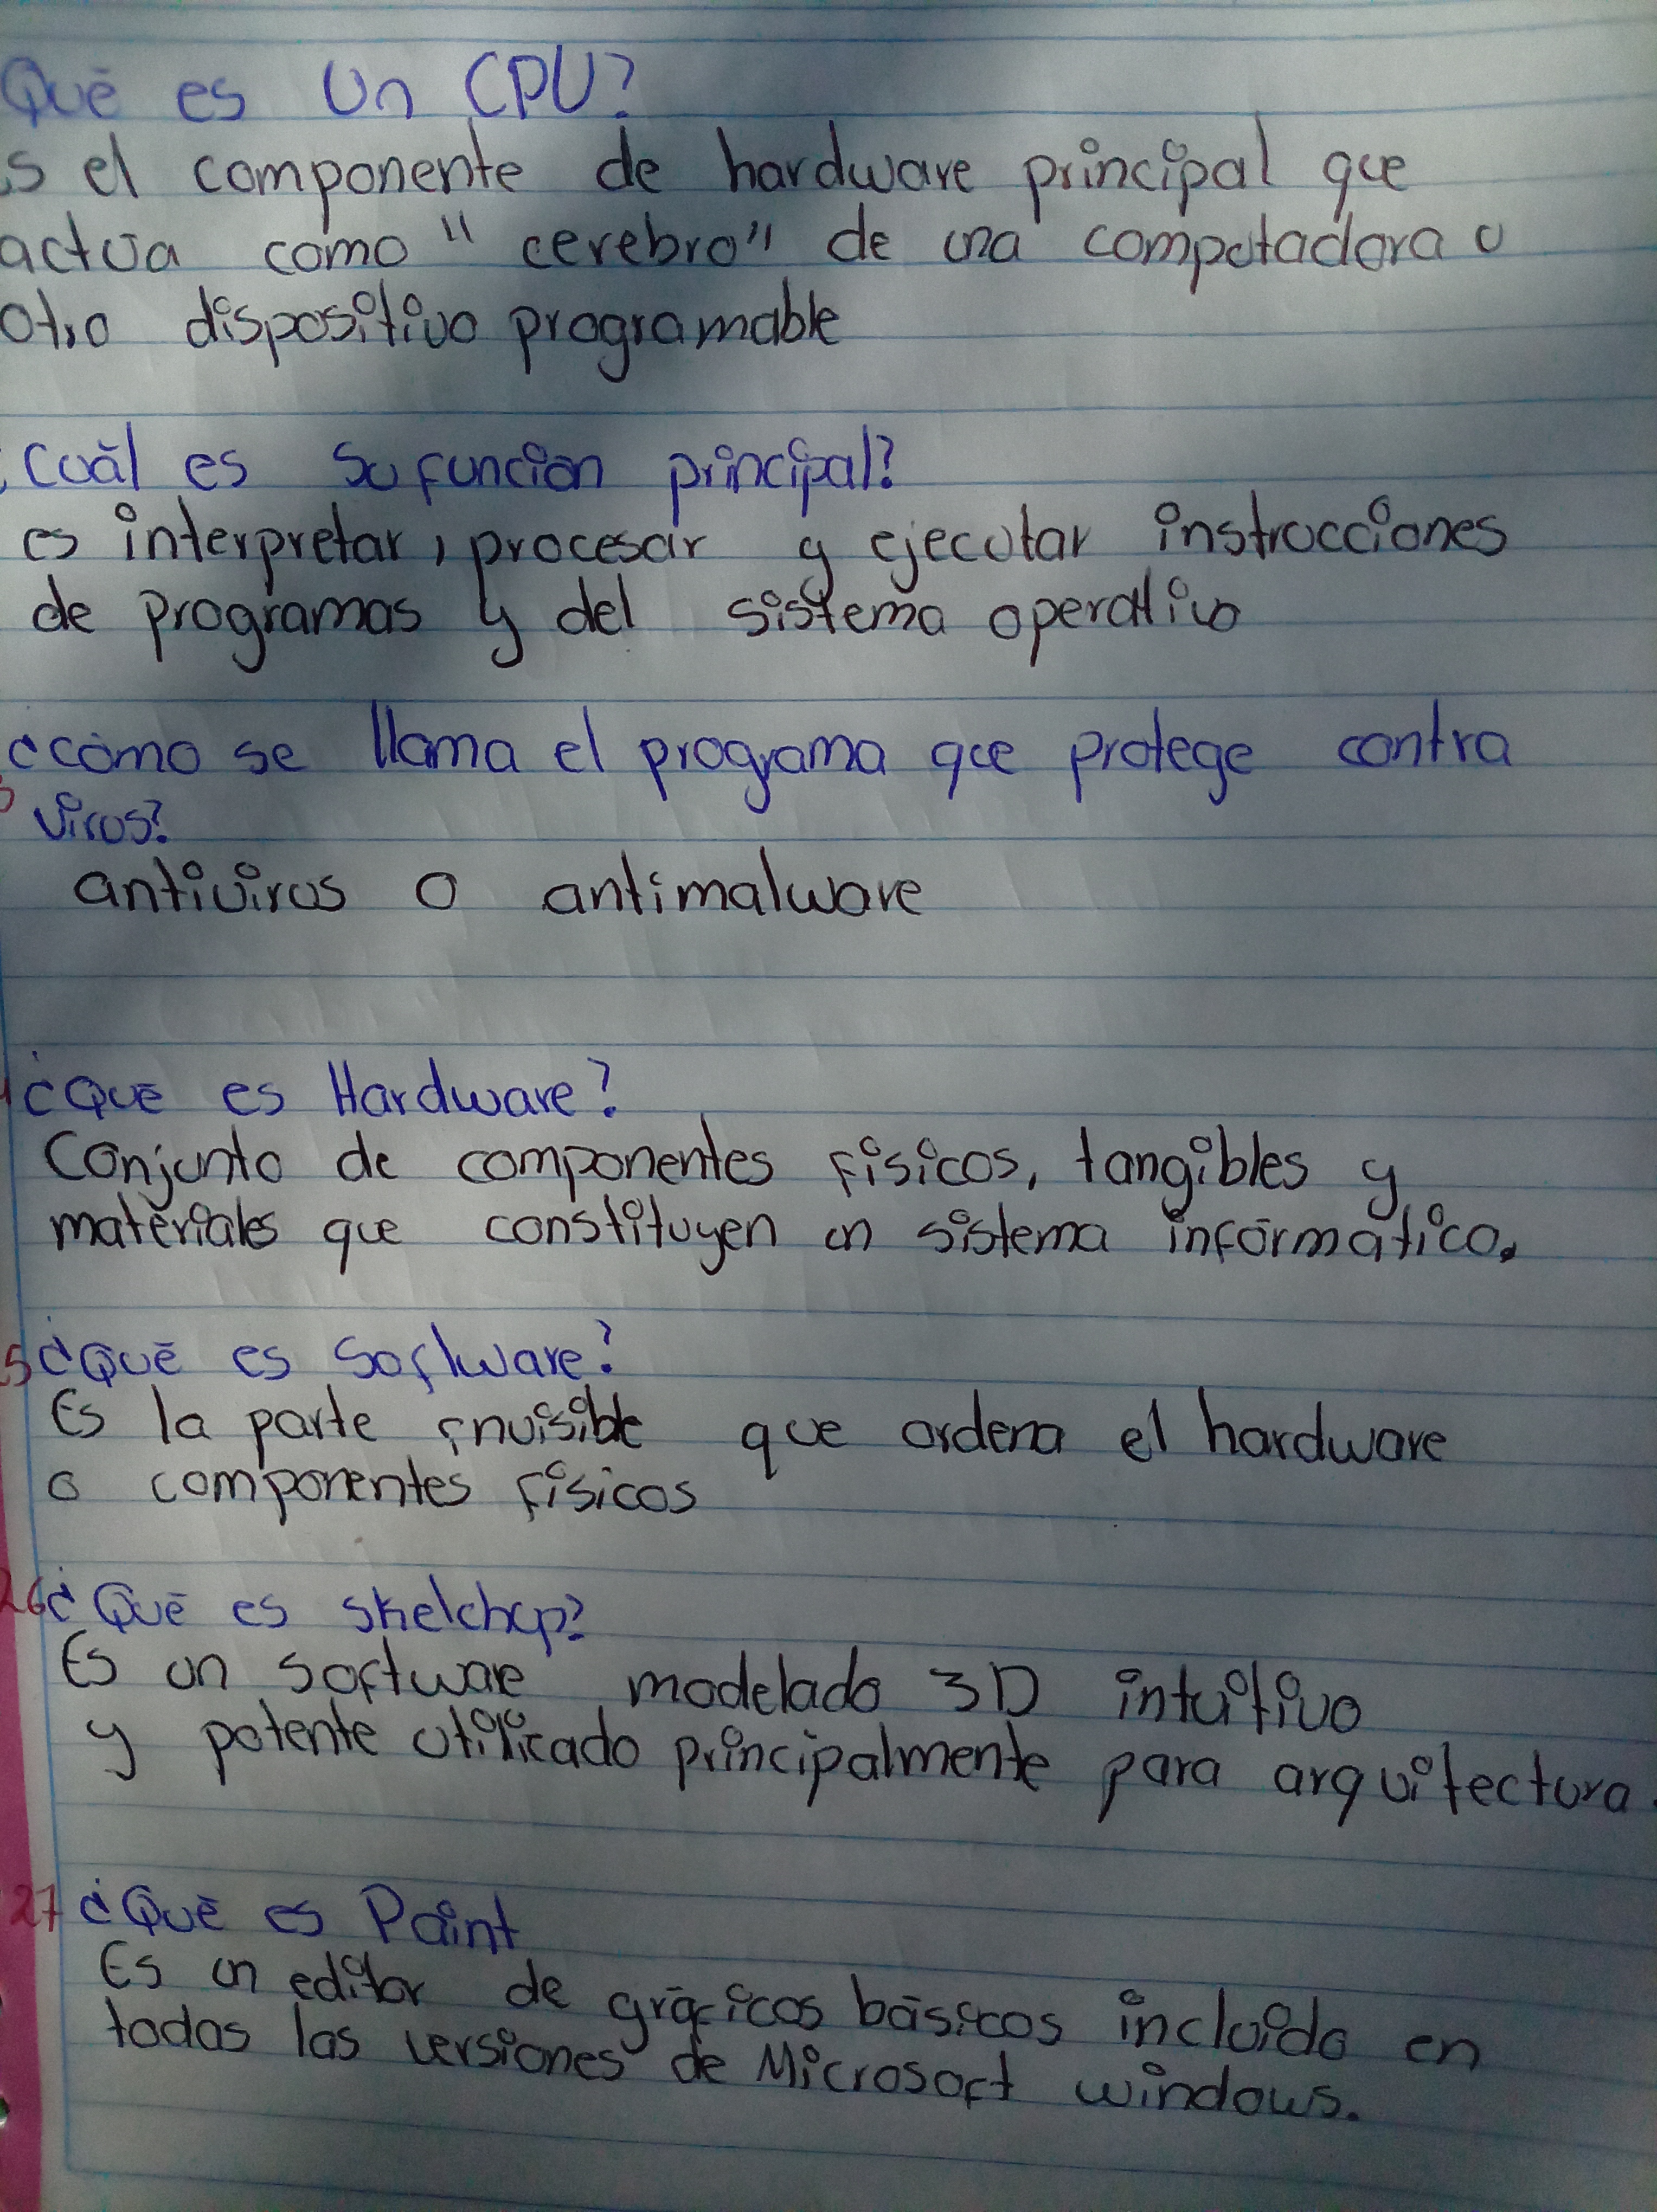 Qué es un CPU?
s el componente de hardware principal que
actúa como "cerebro" de una computadora u
otro dispositivo programable
Cuál es su función principal?
es interpretar, procesar y ejecutar instrucciones
de programas y del sistema operativo
¿cómo se llama el programa que protege contra
virus?
antivirus o antimalware
¿Qué es Hardware?
Conjunto de componentes físicos, tangibles y
materiales que constituyen un sistema informático.
5 ¿Qué es Software?
Es la parte invisible que ordena el hardware
o componentes físicos
26 ¿Qué es sketchup?
Es un software modelado 3D intuitivo
y potente utilizado principalmente para arquitectura.
27 ¿Qué es Paint
Es un editor de gráficos básicos incluido en
todas las versiones de Microsoft windows.